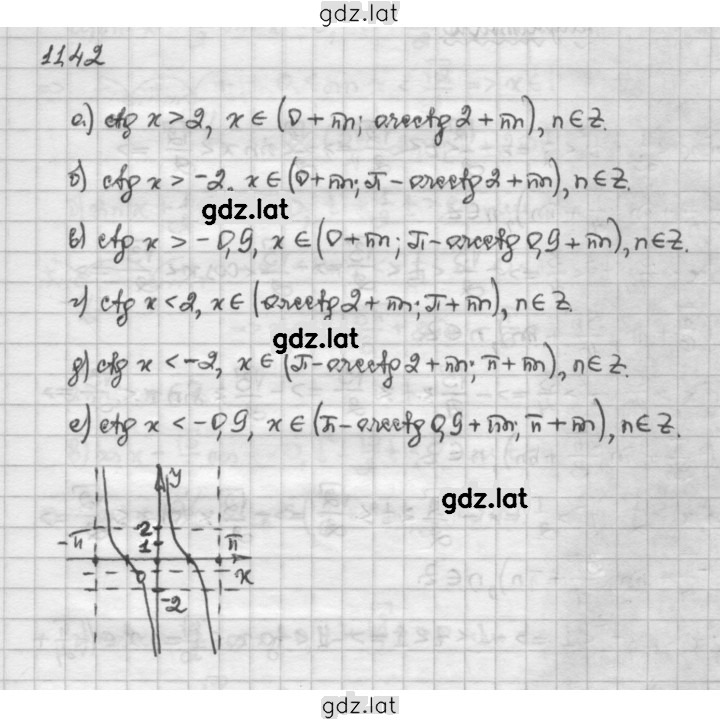 gdz.lat
11.42
а) ctg x > 2, x ∈ (0 + πn; arcctg 2 + πn), n ∈ Z.
б) ctg x > -2, x ∈ (0 + πn; π - arcctg 2 + πn), n ∈ Z.
gdz.lat
в) ctg x > -0,9, x ∈ (0 + πn; π - arcctg 0,9 + πn), n ∈ Z.
г) ctg x < 2, x ∈ (arcctg 2 + πn; π + πn), n ∈ Z.
gdz.lat
д) ctg x < -2, x ∈ (π - arcctg 2 + πn; π + πn), n ∈ Z.
е) ctg x < -0,9, x ∈ (π - arcctg 0,9 + πn; π + πn), n ∈ Z.
y
gdz.lat
2
-π 1 π
0 x
-2
gdz.lat